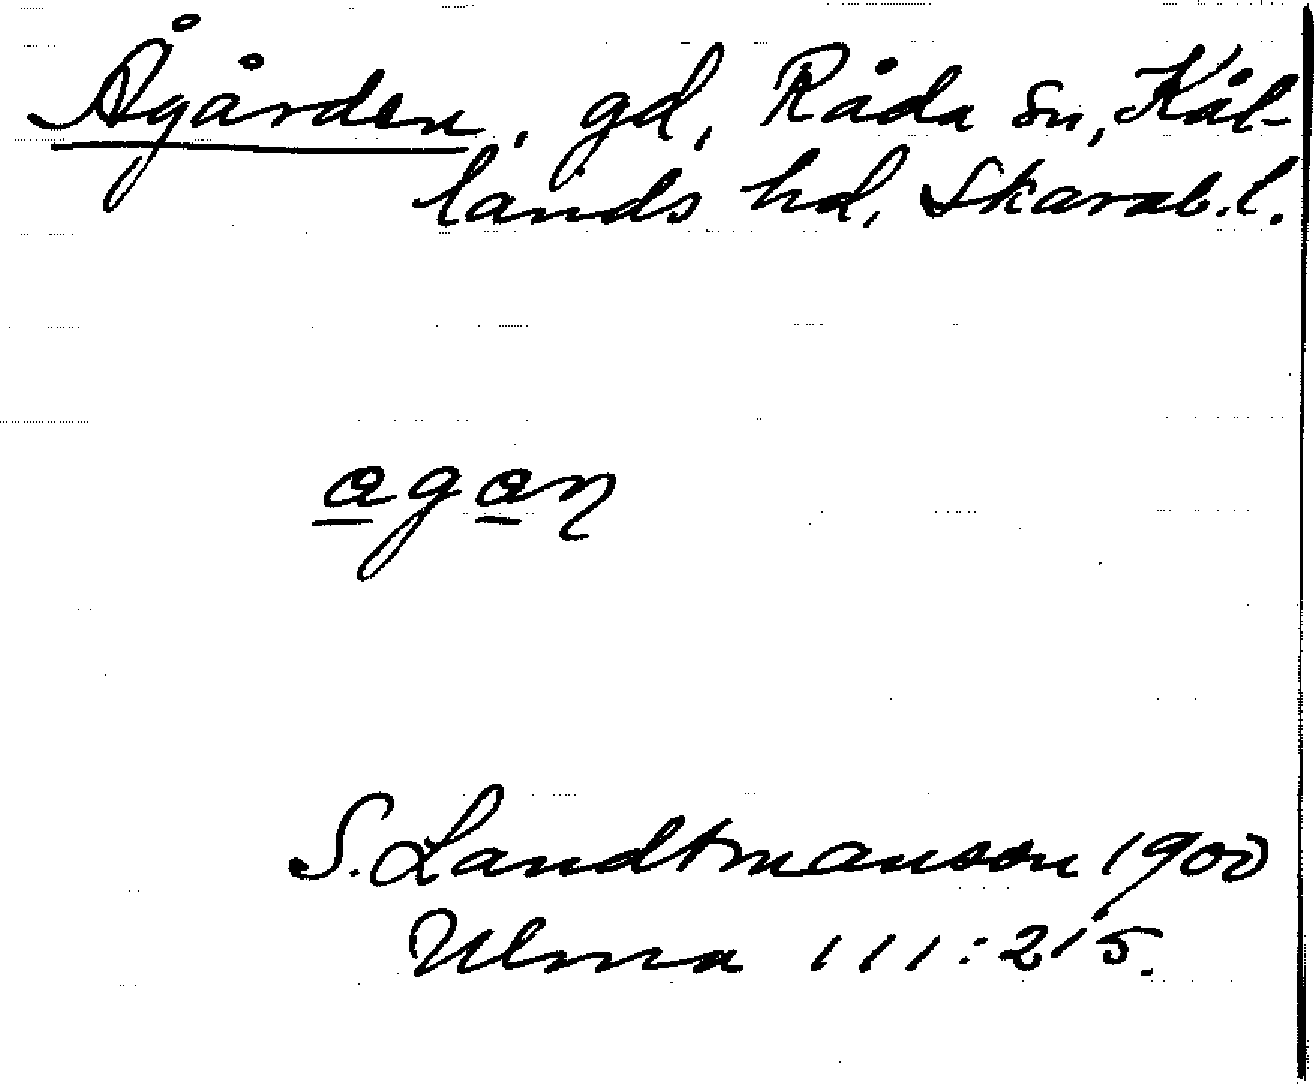 Ågården, gd, Råda sn, Kål-
lands hd, Skarab. l.
agan
S. Landtmanson 1900
Ulma 111:215.